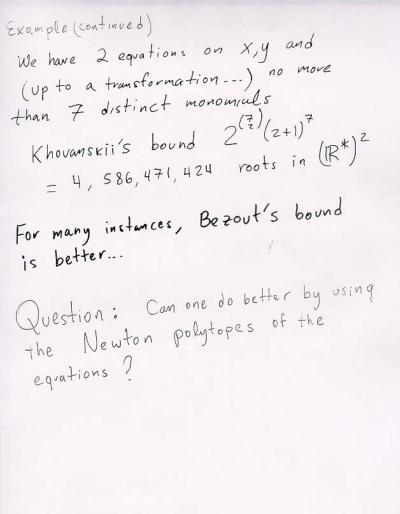 Example (continued)
We have 2 equations on x,y and
(up to a transformation...) no more
than 7 distinct monomials
Khovanskii's bound 2^(7 2) (2+1)^7
= 4,586,471,424 roots in (ℝ*)^2
For many instances, Bezout's bound
is better...
Question: Can one do better by using
the Newton polytopes of the
equations?